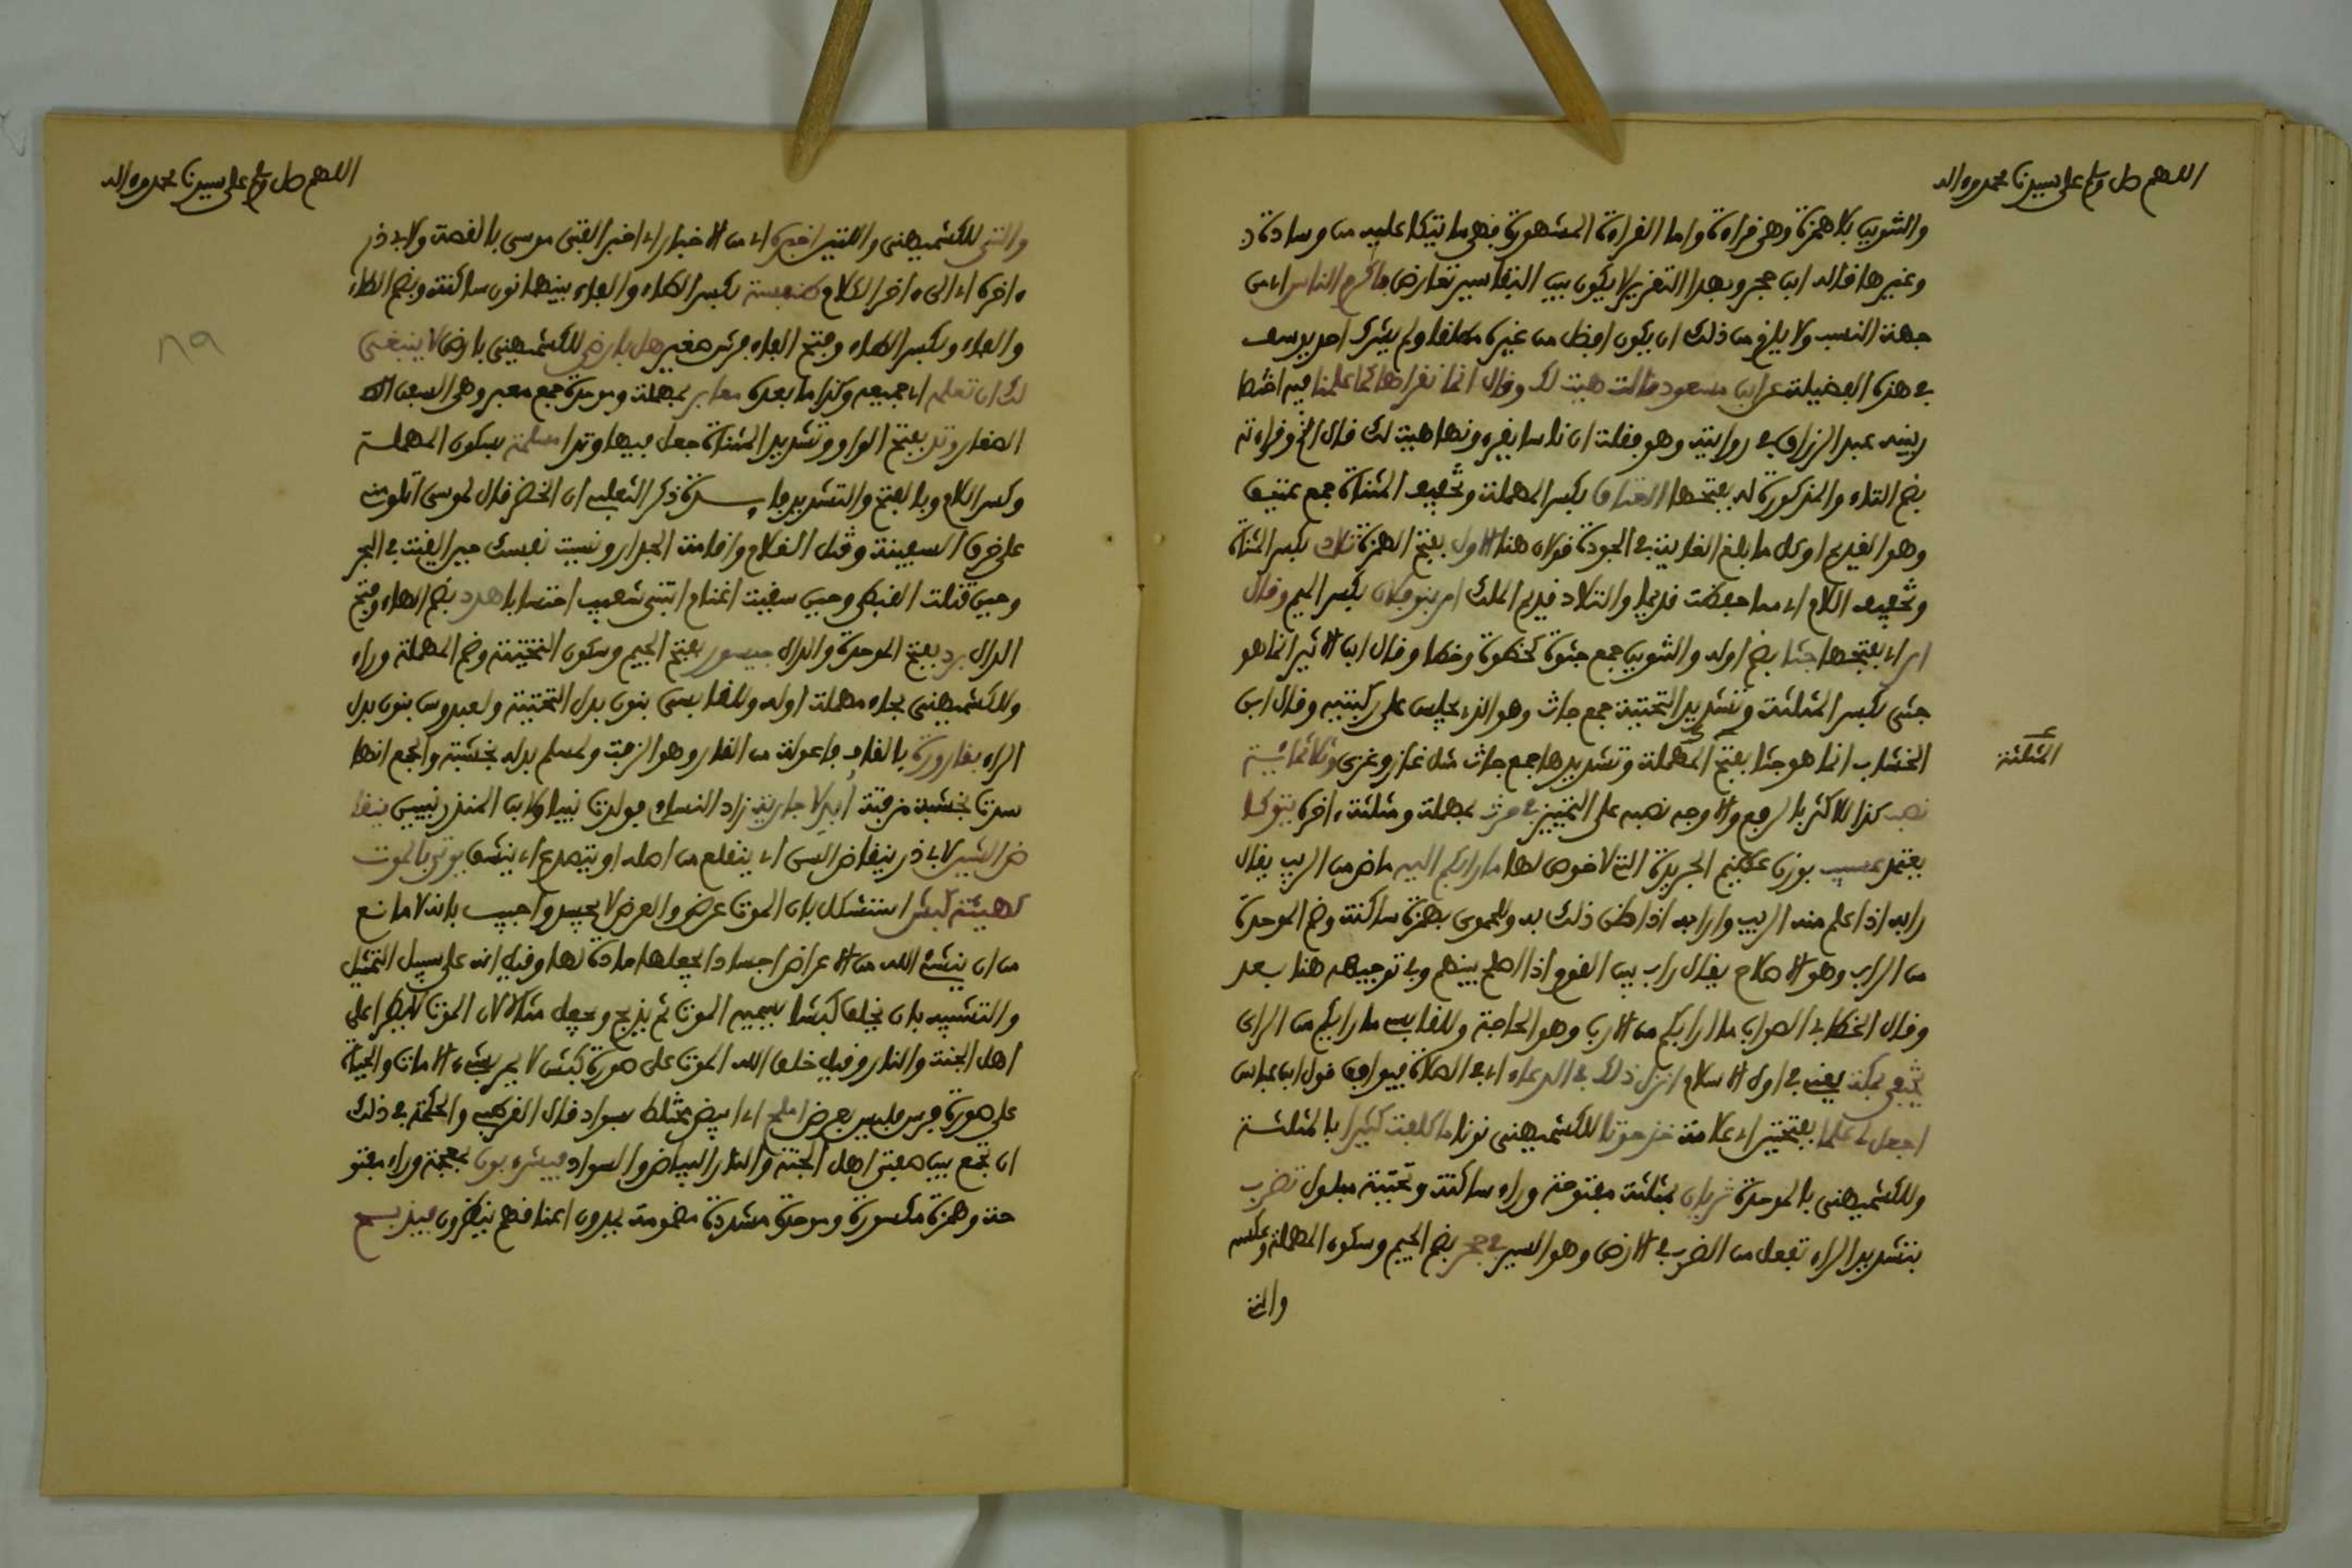 اللهم صل وسلم على سيدنا محمد وءاله
والتنوين بلا همزة وهى قراءة واما القراءة المشهورة فهى ما يتكا عليه من وسادة
وغيرها قاله ابن حجر وبهذا التقرير لا يكون بين التفاسير تعارض فاكرم الناس اى من
جهة النسب ولا يلزم من ذلك ان يكون افضل من غيره مطلقا ولم يشرك احد يوسف
فى هذه الفضيلة عن ابن مسعود قالت هيت لك وقال انما نقراها كما علمنا فيه اختصار
بينه عبد الرزاق فى روايته وهو فقلت ان ناسا يقرءونها هيت لك قال الخ وقراءته
بضم التاء والمذكورة له بفتحها العتاق بكسر المهملة وتخفيف المثناة جمع عتيق
وهو القديم او كل ما بلغ الغاية فى الجودة قولان هنا الاول بفتح الهمزة تلاد بكسر المثناة
وتخفيف اللام اى مما حفظت قديما والتلاد قديم الملك امر بنو فلان بكسر الميم وقال
امر اى بفتحها جثا بضم اوله والتنوين جمع جثوة كخطوة وخطا وقال ابن الاثير انما هو
جثى بكسر المثلثة وتشديد التحتية جمع جاث وهو الذى يجلس على ركبتيه وقال ابن
الخشاب انما هو جثا بفتح المهملة وتشديدها جمع جاث مثل غاز وغزى وثلاثمائة
المثلثة
نصب كذا للاكثر بالرفع والاوجه نصبه على التمييز فى حرث بمهملة ومثلثة ءاخره يتوكا
يعتمد عسيب بوزن عظيم الجريدة التى لا خوص لها ما رابكم اليه ماض من الريب يقال
رابه اذا علم منه الريب وارابه اذا ظن ذلك به وللحموى بهمزة ساكنة وضم الموحدة
من الراب وهو الاصلاح يقال راب بين القوم اذا اصلح بينهم وفى توجيهه هنا بعد
وقال الخطابى الصواب ما اربكم من الارب وهو الحاجة وللقابسى ما رايكم من الراى
مختفى بمكة يعنى فى اول الاسلام انزل ذلك فى الدعاء اى فى الصلاة فيوافق قول ابن عباس
اجعل لى علما بفتحتين اى علامة خذ حوتا للكشميهنى نونا ما كلفت كثيرا بالمثلثة
وللكشميهنى بالموحدة ثريان بمثلثة مفتوحة وراء ساكنة وتحتية مبلول تضرب
بتشديد الراء تفعل من الضرب فى الارض وهو السير فى جحر بضم الجيم وسكون المهملة وعكسه
والتى
اللهم صل وسلم على سيدنا محمد وءاله
والتى للكشميهنى واللتين اخبره اى من الاخبار اى اخبر الفتى موسى بالقصة ولابى ذر
ءاخره اى الى ءاخر الكلام طنفسة بكسر الطاء والفاء بينهما نون ساكنة وبضم الطاء
والفاء وبكسر الطاء وفتح الفاء فرش صغير هل بارضى للكشميهنى بارض لا ينبغى
لك ان تعلمه اى جميعه وكذا ما بعده معابر بمهملة وموحدة جمع معبر وهى السفن
الصغار وتد بفتح الواو وتشديد المثناة جعل فيها وتدا مسلمة بسكون المهملة
وكسر اللام وبالفتح والتشديد فايدة ذكر الثعلبى ان الخضر قال لموسى اتلومنى
على خرق السفينة وقتل الغلام واقامة الجدار ونسيت نفسك حين القيت فى البحر
وحين قتلت القبطى وحين سقيت اغنام ابنتى شعيب احتسابا هدد بضم الهاء وفتح
الدال بدد بفتح الموحدة والدال جيسور بفتح الجيم وسكون التحتية وضم المهملة وراء
وللكشميهنى بحاء مهملة اوله وللقابسى بنون بدل التحتية ولعبدوس بنون بدل
الراء بقارورة بالقاف فاعولة من القار وهو الزفت ولمسلم بدله بخشبة والجمع انها
سدت بخشبة مزفتة ابدلا جارية زاد النساى فولدت نبيا ولابن المنذر نبيين ينقا
ض الشير لابى ذر ينقاض السن اى ينقلع من اصله او يتصدع اى ينشق يوتى بالموت
كهيئة كبش استشكل بان الموت عرض والعرض لا يجسد واجيب بانه لا مانع
من ان ينشئ الله من الاعراض اجسادا يجعلها مادة لها وقيل انه على سبيل التمثيل
والتشبيه بان يخلق كبشا يسميه الموت ثم يذبح ويجعل مثالا لان الموت لا يطرا على
اهل الجنة والنار وقيل خلق الله الموت على صورة كبش لا يمر بشىء الا مات والحياة
على صورة فرس فليس بعرض املح اى ابيض مختلط بسواد قال القرطبى والحكمة فى ذلك
ان يجمع بين صفتى اهل الجنة والنار البياض والسواد فيشرءبون بمعجمة وراء مفتو
حة وهمزة مكسورة وموحدة مشددة مضمومة يمدون اعناقهم ينظرون فيذبح